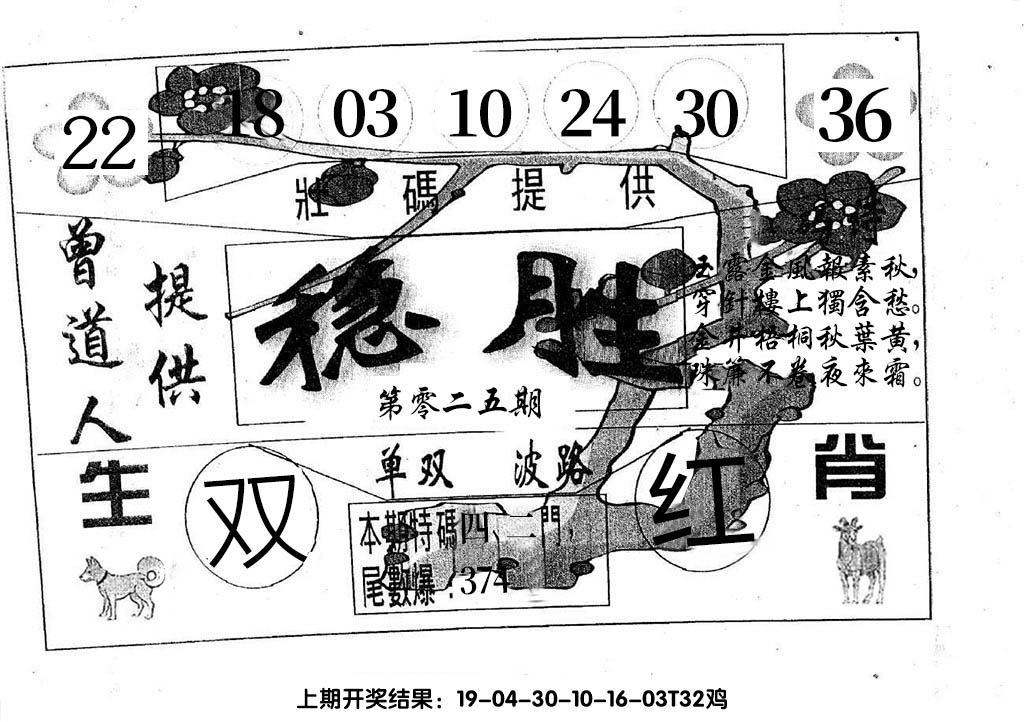 22 18 03 10 24 30 36
壯碼提供
曾道人
提供
稳胜
第零二五期
玉露金風報素秋，
穿針樓上獨含愁。
金井梧桐秋葉黄，
珠簾不卷夜來霜。
单双 波路
生肖
双
红
本期特碼四、二門，
尾數爆：374
上期开奖结果：19-04-30-10-16-03T32鸡